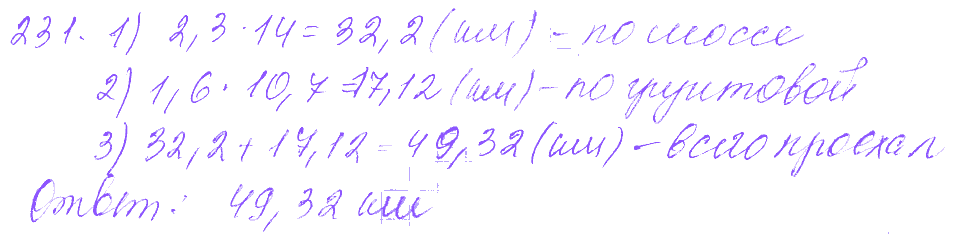 231. 1) 2,3 · 14 = 32,2 (км) – по шоссе
2) 1,6 · 10,7 = 17,12 (км) – по грунтовой
3) 32,2 + 17,12 = 49,32 (км) – всего проехал
Ответ: 49,32 км